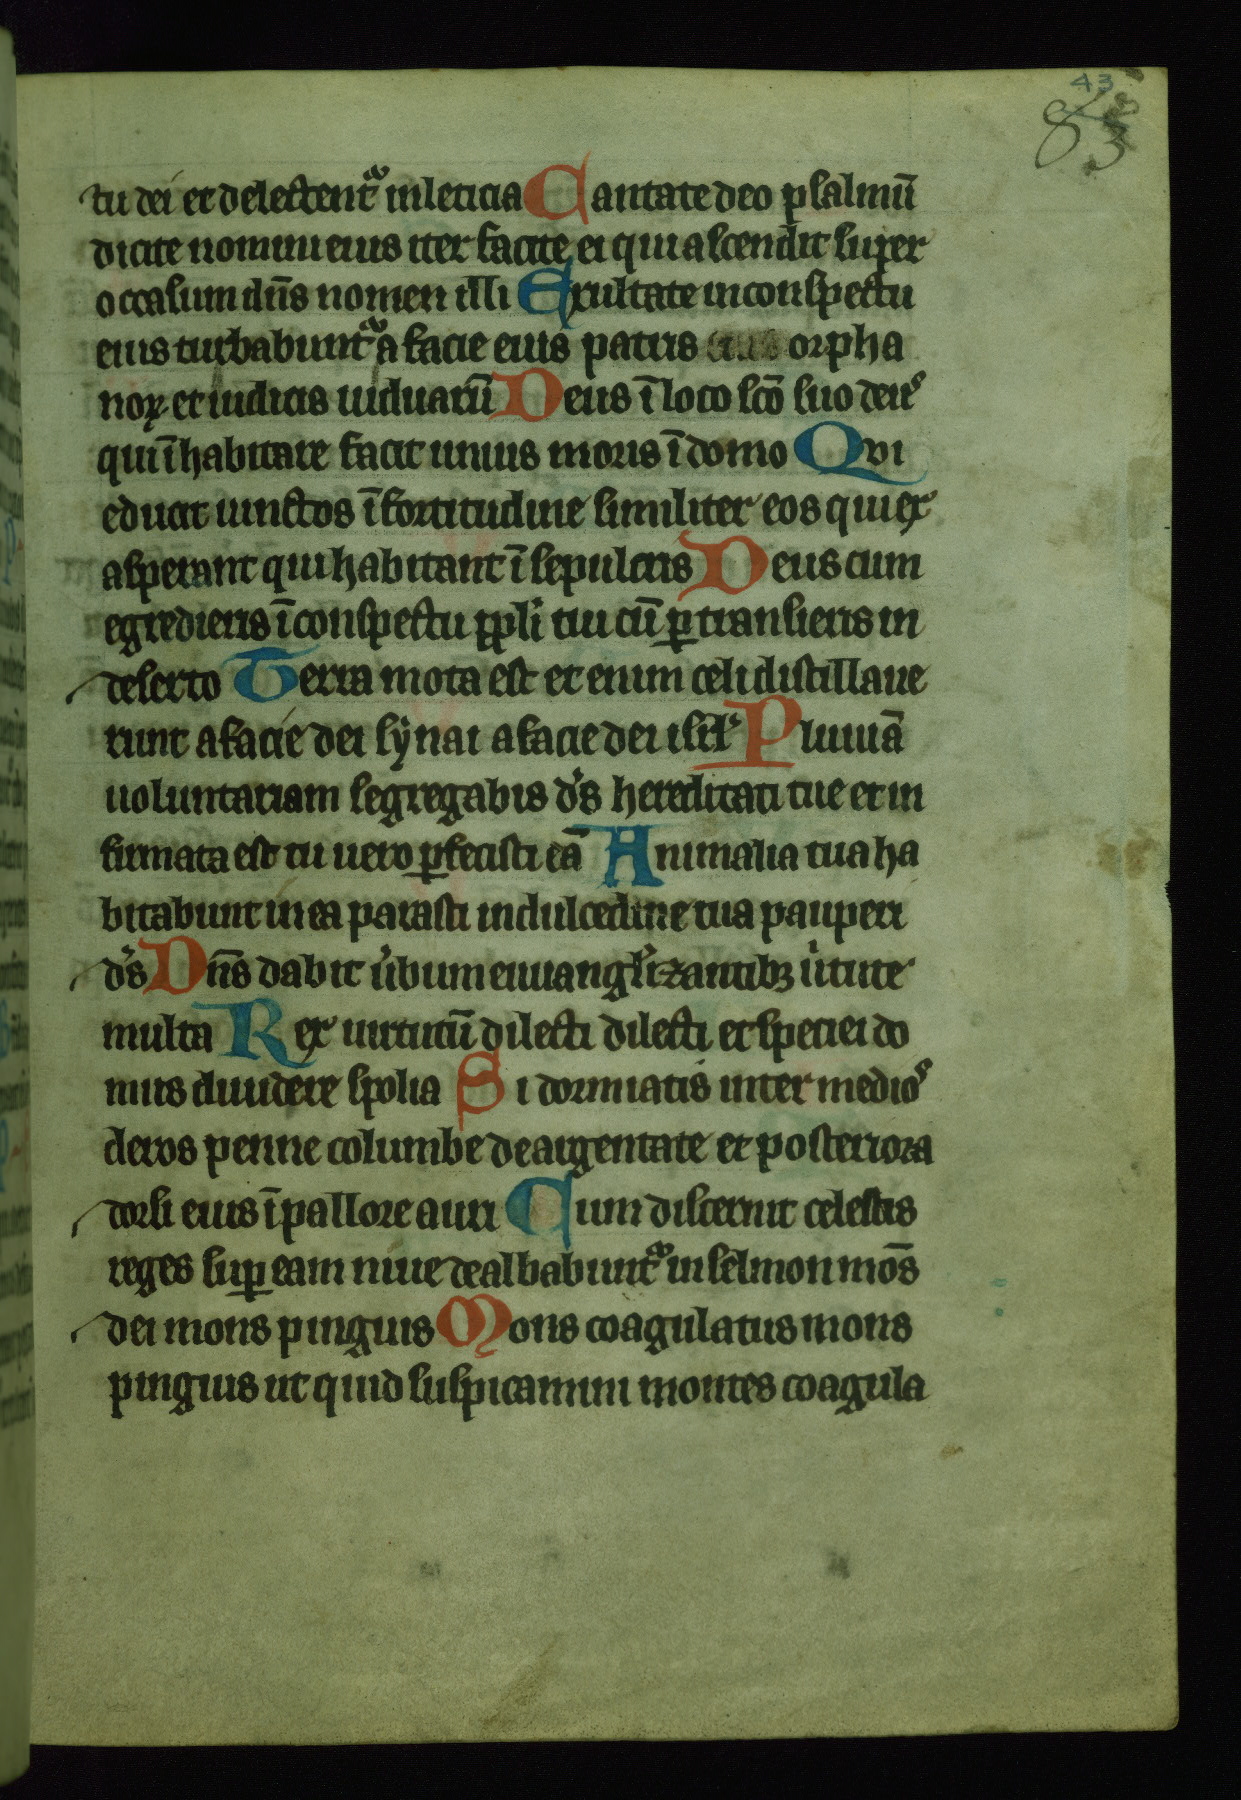 43
83
tu dei et delectent᷑ in leticia Cantate deo psalmū
dicite nomini eius iter facite ei qui ascendit super
occasum dn̄s nomen illi Exultate in conspectu
eius turbabunt᷑ a facie eius patris orpha
noꝝ et iudicis uiduarū Deus ī loco sc̄o suo deus
qui īhabitare facit unius moris ī domo Qvi
educit iunctos ī fortitudine similiter eos qui ex
asperant qui habitant ī sepulcris Deus cum
egredieris ī conspectu ppli tui cū ꝑtransieris in
deserto Terra mota est et enim celi distillaue
runt a facie dei synai a facie dei isrl Pluuiā
uoluntariam segregabis ds hereditati tue et in
firmata est tu uero ꝑfecisti eā Animalia tua ha
bitabunt in ea parasti in dulcedine tua pauperi
ds Dn̄s dabit ubum euuanglizantibꝫ utute
multa Rex uirtutū dilecti dilecti et speciei do
mus diuidere spolia Si dormiatis inter medios
cleros penne columbe deargentate et posteriora
dorsi eius ī pallore auri Cum discernit celestis
reges suꝑ eam niue dealbabunt᷑ in selmon mōs
dei mons pinguis Mons coagulatus mons
pinguis ut quid suspicamini montes coagula